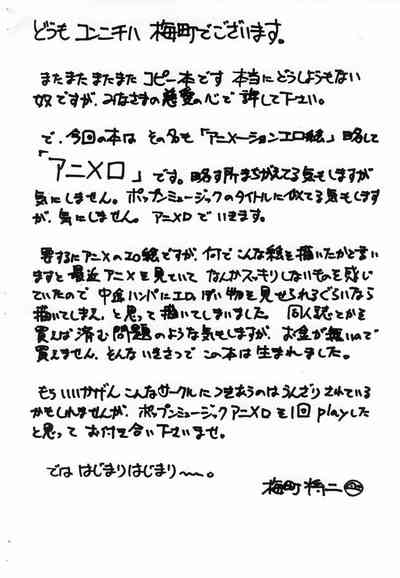 どうも コンニチハ 梅町でございます。
またまたまたまた コピー本です 本当にどうしようもない
奴ですが、みなさまの慈愛の心で 許して下さい。
で、今回の本は その名も「アニメーションエロ絵」略して
「アニメロ」です。略す所まちがえてる気もしますが
気にしません。ポップンミュージックのタイトルに似てる気もします
が、気にしません。アニメロ でいきます。
要するにアニメのエロ絵ですが、何でこんな絵を描いたかと言い
ますと最近アニメを見ていて なんかスッキリしないものを感じ
ていたので 中途ハンパにエロっぽい物を見せられるぐらいなら
描いてしまえ、と思って描いてしまいました。同人誌とかを
買えば済む問題のような気もしますが、お金が無いので
買えません、そんないきさつで この本は生まれました。
もういいかげん こんなサークルにつきあうのはうんざりされている
かもしれませんが、ポップンミュージックアニメロを1回 playした
と思って お付き合い下さいませ。
では はじまりはじまり〜。
梅町 将二